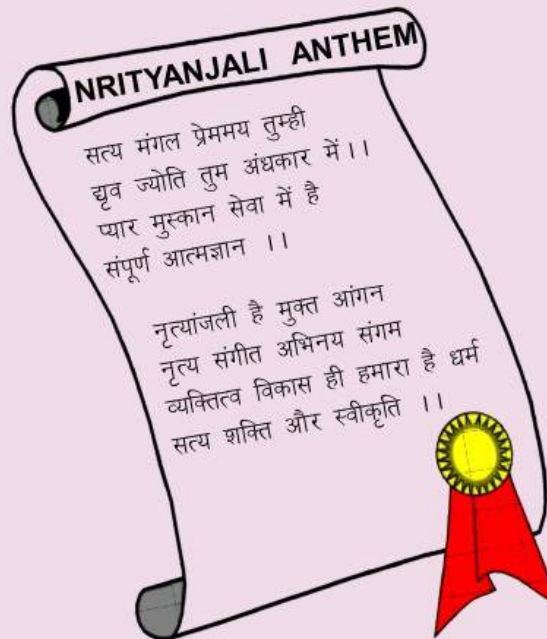 NRITYANJALI ANTHEM
सत्य मंगल प्रेममय तुम्ही
द्यृव ज्योति तुम अंधकार में।।
प्यार मुस्कान सेवा में है
संपूर्ण आत्मज्ञान ।।
नृत्यांजली है मुक्त आंगन
नृत्य संगीत अभिनय संगम
व्यक्तित्व विकास ही हमारा है धर्म
सत्य शक्ति और स्वीकृति ।।